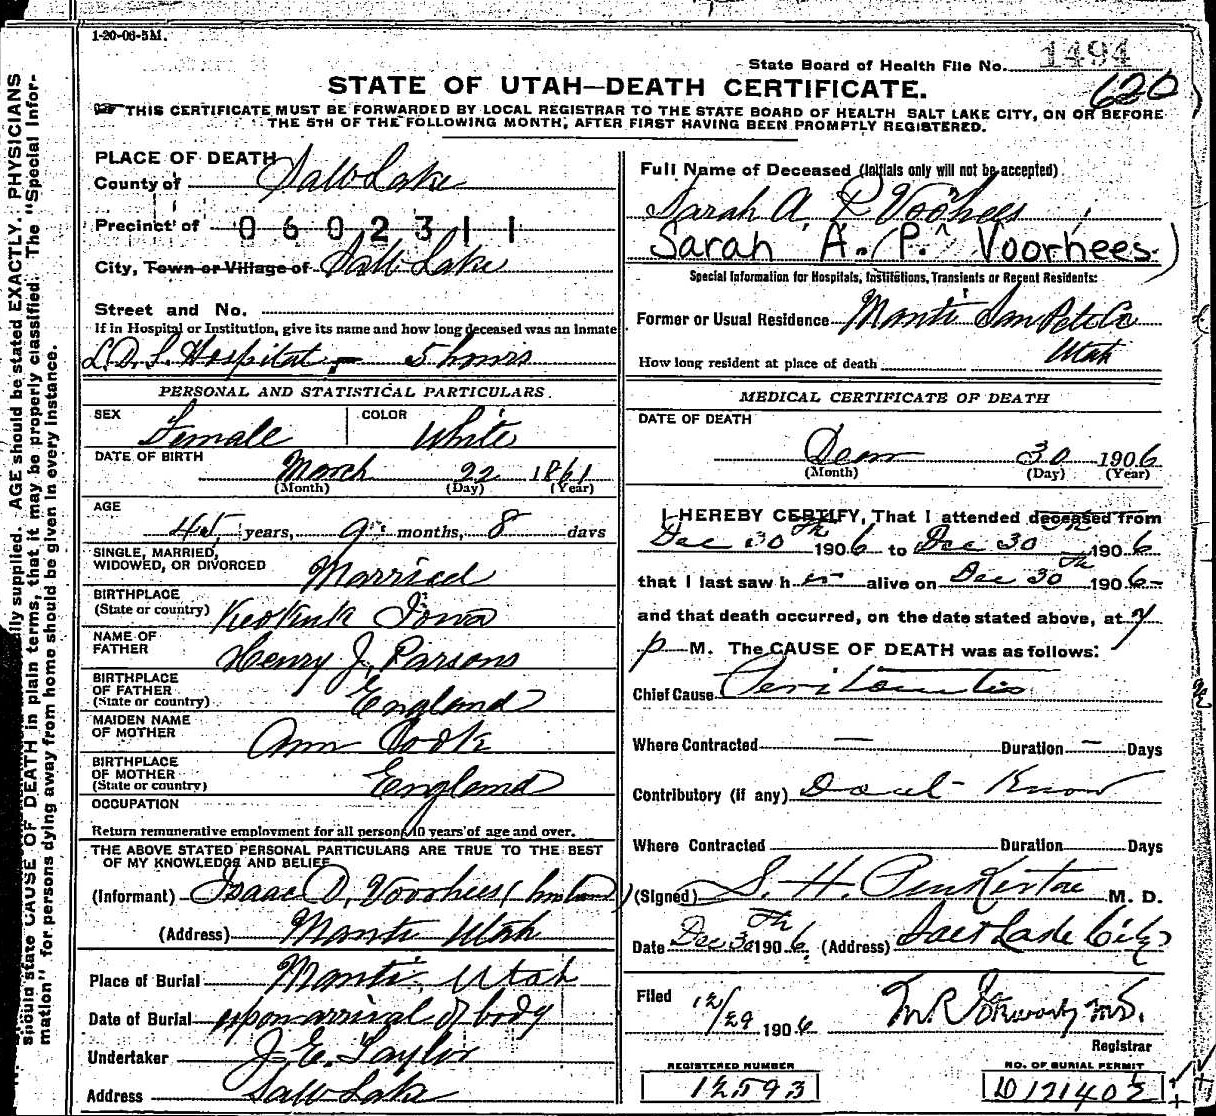 1-20-06-5M.
State Board of Health File No. 1494
620
STATE OF UTAH—DEATH CERTIFICATE.
THIS CERTIFICATE MUST BE FORWARDED BY LOCAL REGISTRAR TO THE STATE BOARD OF HEALTH SALT LAKE CITY, ON OR BEFORE
THE 5TH OF THE FOLLOWING MONTH, AFTER FIRST HAVING BEEN PROMPTLY REGISTERED.
PLACE OF DEATH
County of Salt Lake
Precinct of 0602311
City, Town or Village of Salt Lake
Street and No.
If in Hospital or Institution, give its name and how long deceased was an inmate
L.D.S. Hospital - 5 hours
PERSONAL AND STATISTICAL PARTICULARS
SEX Female COLOR White
DATE OF BIRTH March 22 1861
(Month) (Day) (Year)
AGE 45 years, 9 months, 8 days
SINGLE, MARRIED,
WIDOWED, OR DIVORCED Married
BIRTHPLACE
(State or country) Keokuk Iowa
NAME OF
FATHER Henry J. Parsons
BIRTHPLACE
OF FATHER
(State or country) England
MAIDEN NAME
OF MOTHER Ann Cook
BIRTHPLACE
OF MOTHER
(State or country) England
OCCUPATION
Return remunerative employment for all persons 10 years of age and over.
THE ABOVE STATED PERSONAL PARTICULARS ARE TRUE TO THE BEST
OF MY KNOWLEDGE AND BELIEF
(Informant) Isaac D. Voorhees (husband)
(Address) Manti Utah
Place of Burial Manti, Utah
Date of Burial upon arrival of body
Undertaker J. E. Taylor
Address Salt Lake
Full Name of Deceased (Initials only will not be accepted)
Sarah A. P Voorhees
Sarah A. (P.) Voorhees
Special Information for Hospitals, Institutions, Transients or Recent Residents:
Former or Usual Residence Manti San Pete Co
Utah
How long resident at place of death
MEDICAL CERTIFICATE OF DEATH
DATE OF DEATH
30 1906
(Month) (Day) (Year)
I HEREBY CERTIFY, That I attended deceased from
Dec 30th 1906 to Dec 30th 1906
that I last saw her alive on Dec 30th 1906
and that death occurred, on the date stated above, at 7
p M. The CAUSE OF DEATH was as follows:
Chief Cause Peritonitis
Where Contracted — Duration — Days
Contributory (if any) Don't Know
Where Contracted Duration Days
(Signed) S. H. Pinkerton M. D.
Date Dec 30th 1906. (Address) Salt Lake City
Filed 12/29 1906 M.D.
Registrar
REGISTERED NUMBER
12593
NO. OF BURIAL PERMIT
D 121402
PHYSICIANS
should state CAUSE OF DEATH in plain terms, that it may be properly classified. The "Special Infor-
mation" for persons dying away from home should be given in every instance.
supplied. AGE should be stated EXACTLY.